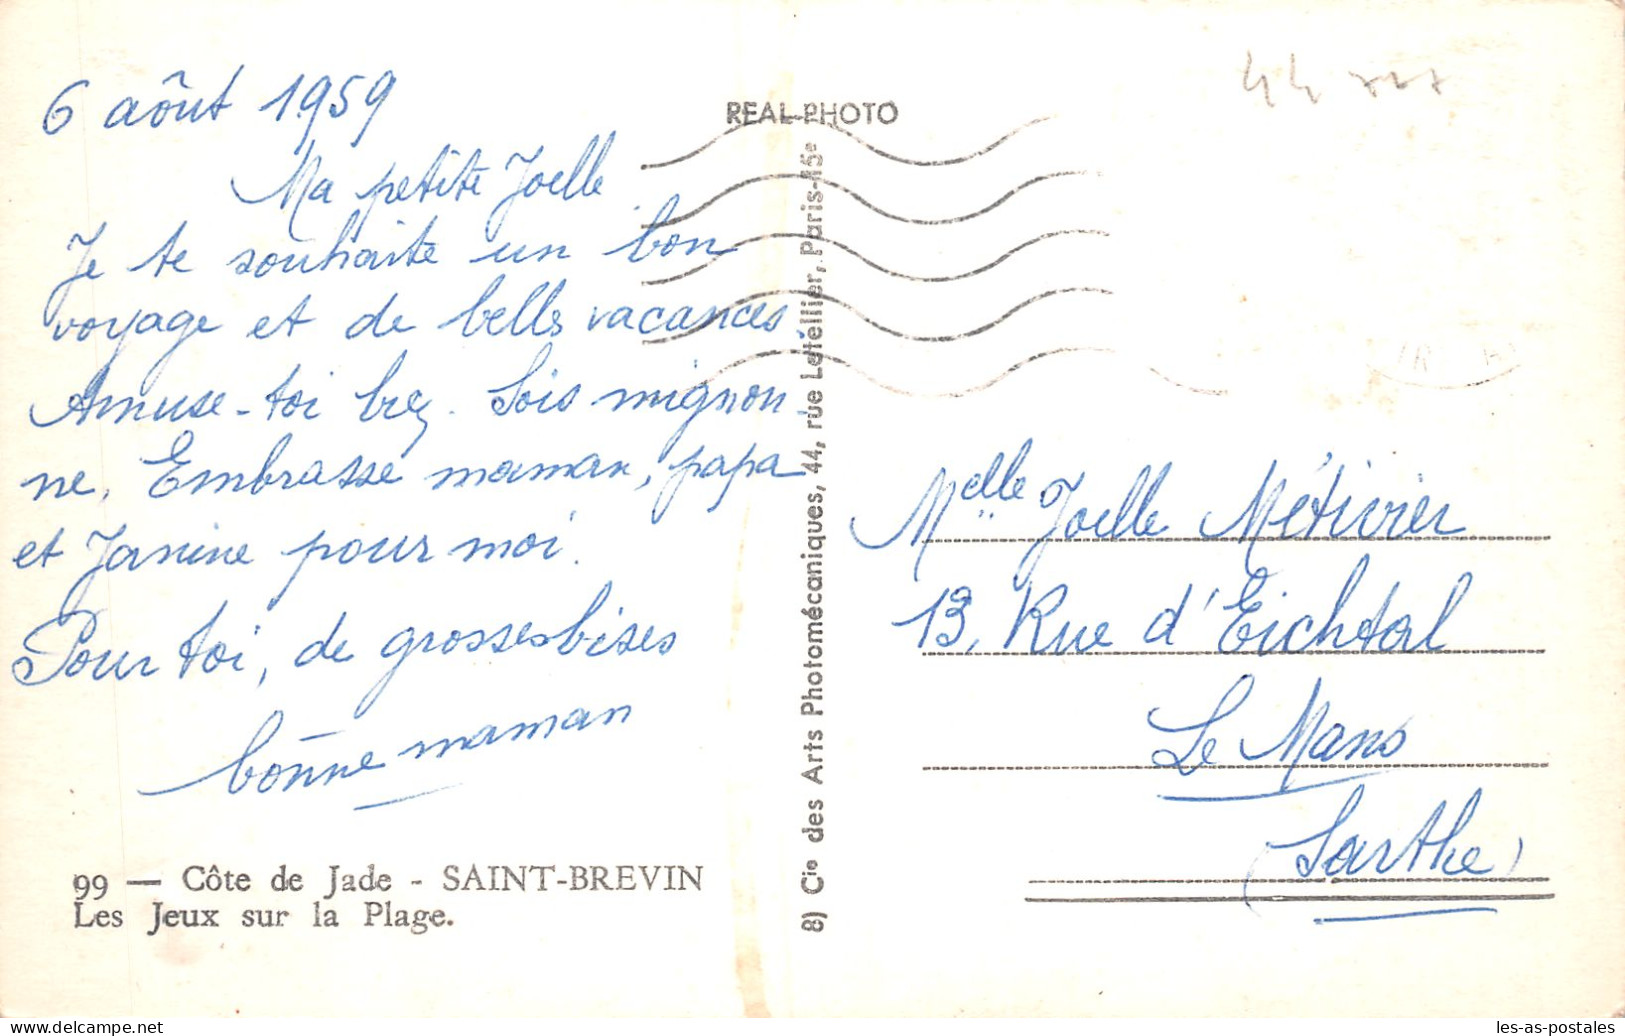 6 août 1959
Ma petite Joelle
Je te souhaite un bon
voyage et de belles vacances.
Amuse-toi bien. Sois mignon-
ne. Embrasse maman, papa
et Janine pour moi.
Pour toi, de grosses bises
bonne maman
99 — Côte de Jade - SAINT-BREVIN
Les Jeux sur la Plage.
REAL-PHOTO
8) Cie des Arts Photomécaniques, 44, rue Letellier, Paris-15e
44
Melle Joelle Métivier
13, Rue d'Eichtal
Le Mans
(Sarthe)
les-as-postales